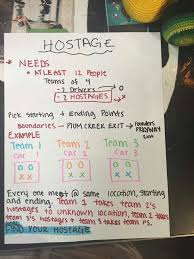 HOSTAGE
NEEDS
ATLEAST 12 People
Teams of 4
- 2 Drivers
- 2 HOSTAGES
Pick Starting + Ending Points
Boundaries - PLUM CREEK EXIT → Founders PARKWAY Exit
EXAMPLE
Team 1 Team 2 Team 3
Car 1 Car 2 Car 3
O O O O O O
X X X X X X
Every one meet @ same location, starting
and ending. Team 1 takes team 2's
hostages to unknown location, team 2 takes
team 3's hostages + team 3 takes team 1's.
FIND YOUR HOSTAGE